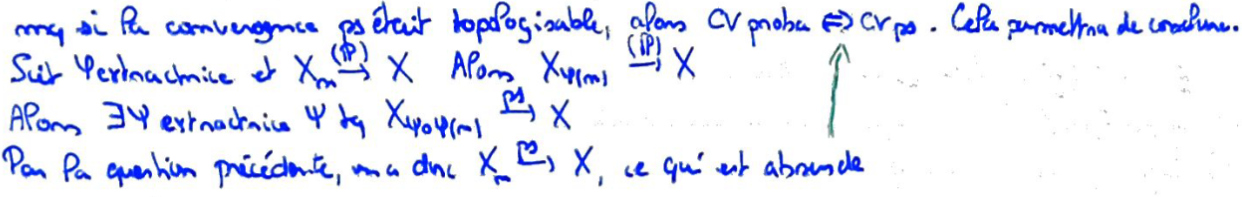 mq si la convergence ps était topologisable, alors CV proba ⇔ CV ps. Cela permettra de conclure.
Soit φ extractrice et X_n →^(P) X Alors X_φ(n) →^(P) X
Alors ∃Ψ extractrice Ψ tq X_φoψ(n) →^ps X
Par la question précédente, on a donc X_n →^ps X, ce qui est absurde